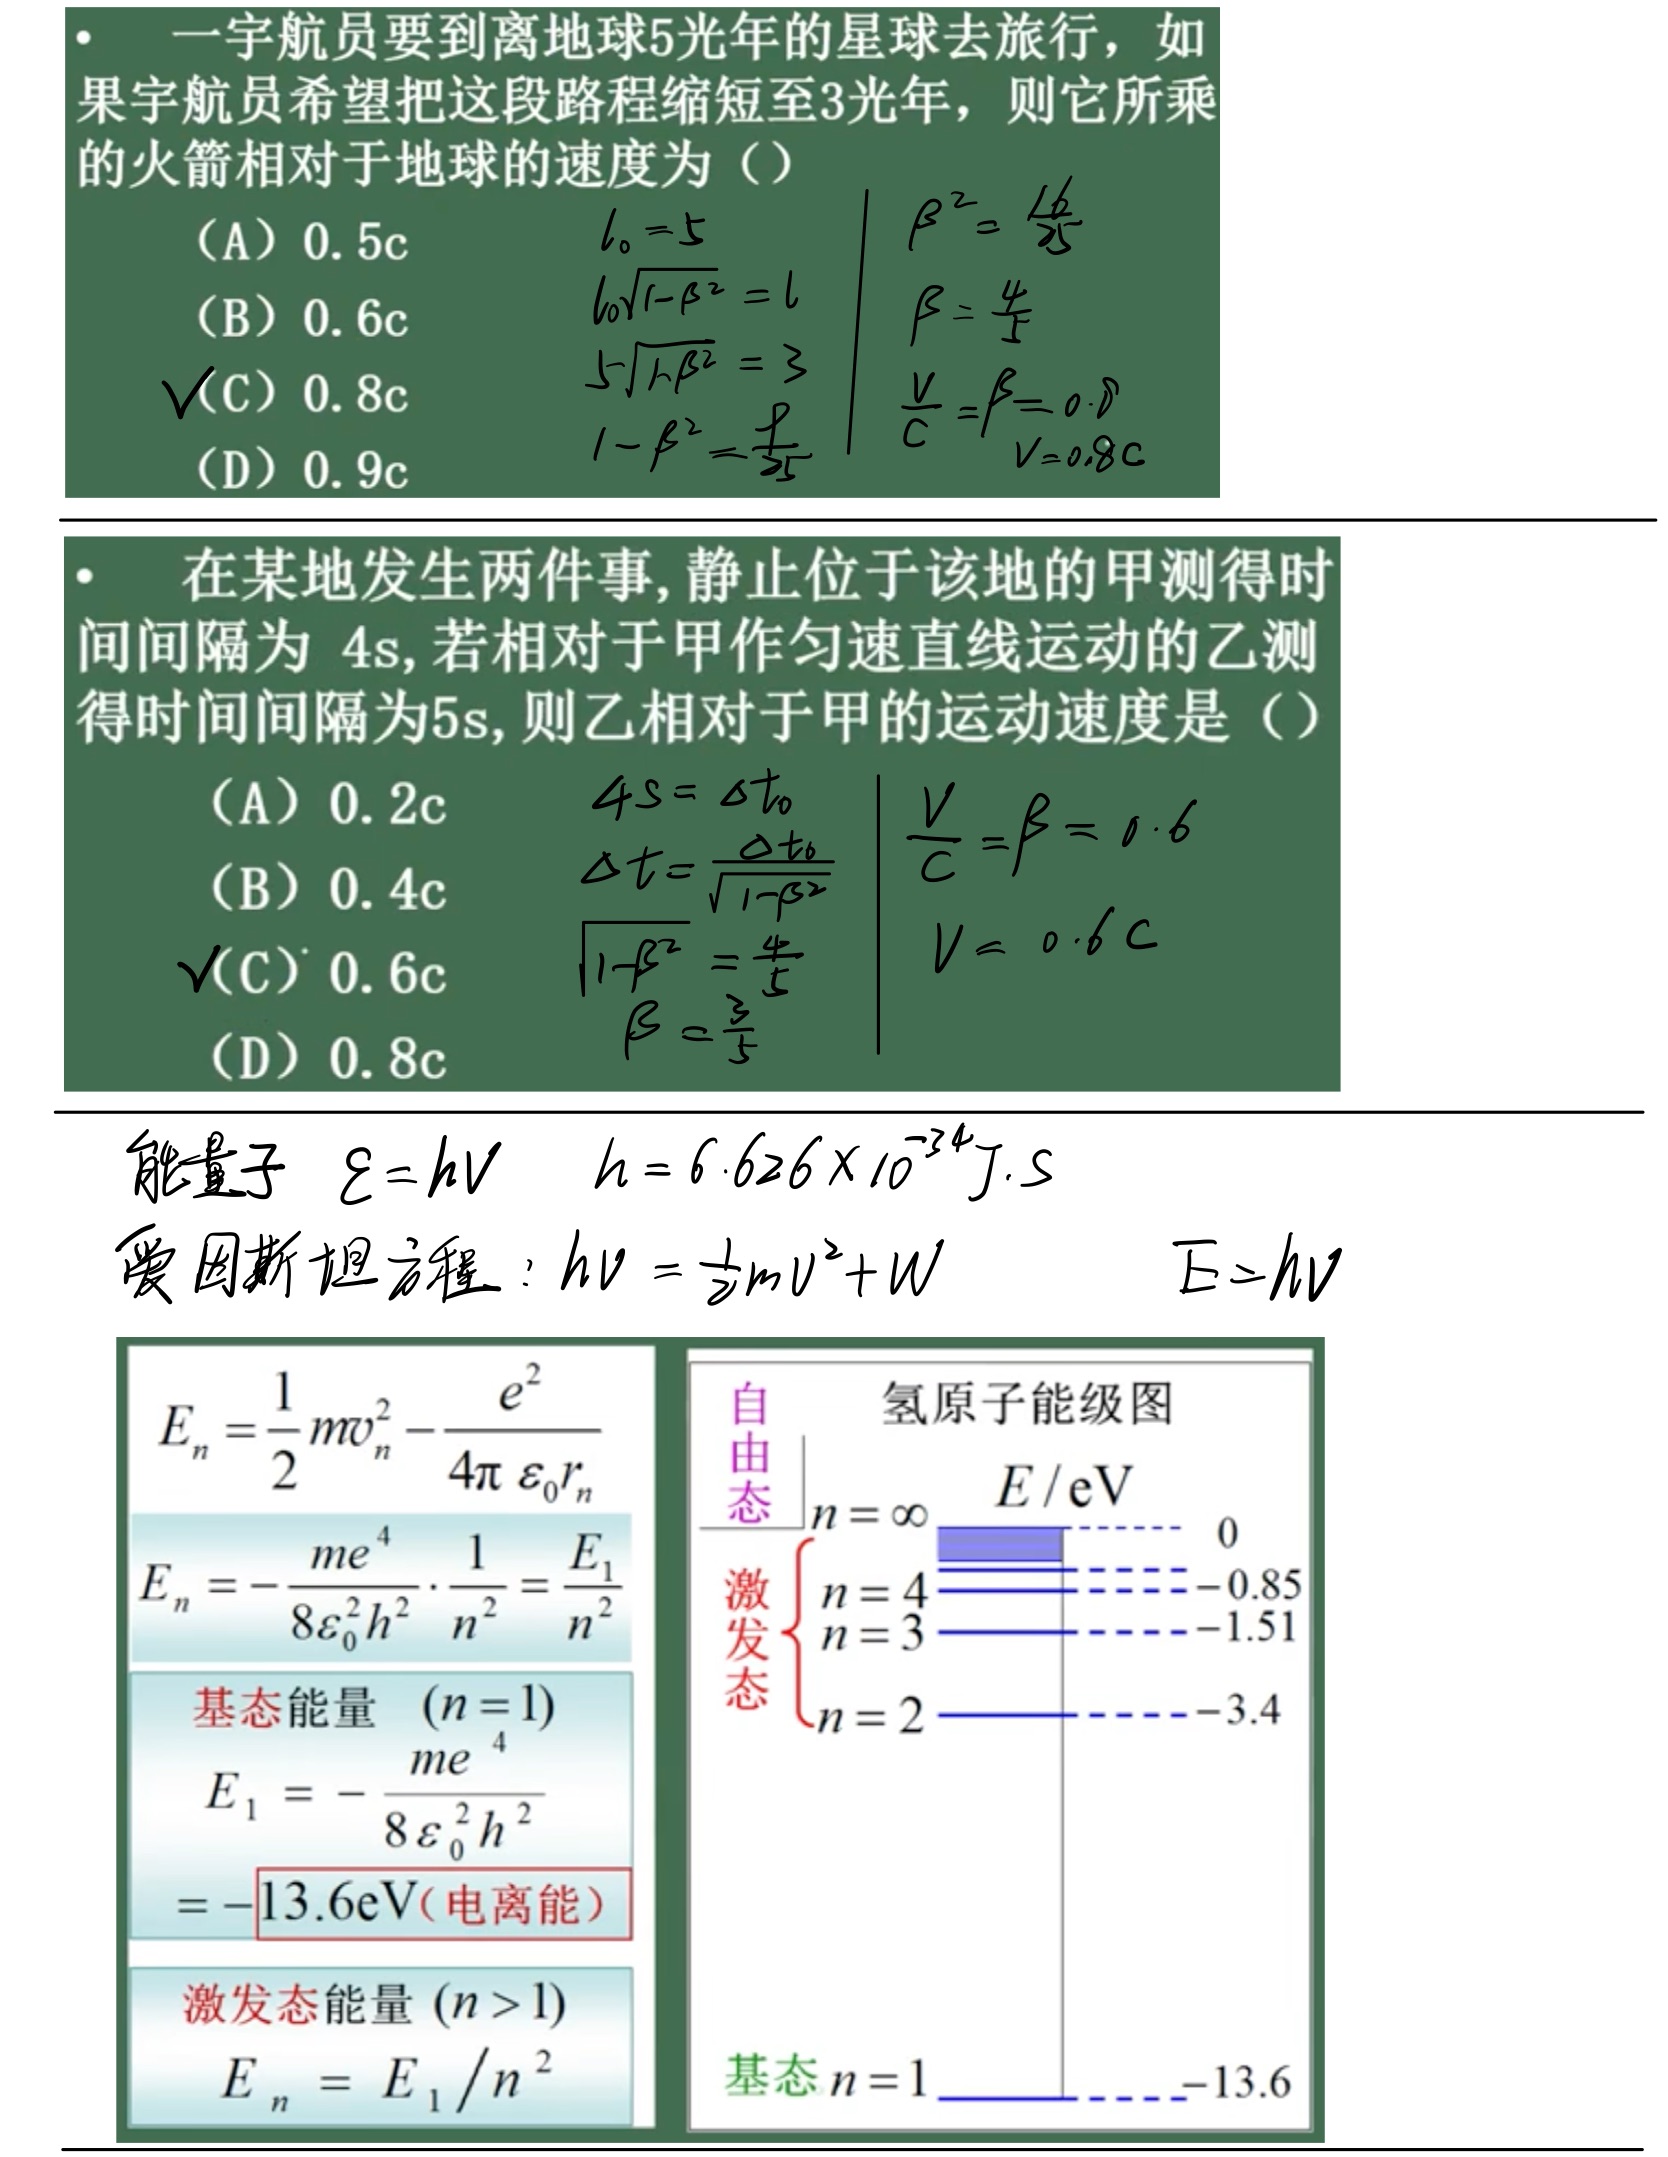 • 一宇航员要到离地球5光年的星球去旅行，如
果宇航员希望把这段路程缩短至3光年，则它所乘
的火箭相对于地球的速度为（）
（A）0.5c
（B）0.6c
✓（C）0.8c
（D）0.9c
l₀ = 5
l₀√(1-β²) = l
5√(1-β²) = 3
1-β² = 9/25
β² = 16/25
β = 4/5
V/C = β = 0.8
V = 0.8C
• 在某地发生两件事,静止位于该地的甲测得时
间间隔为 4s,若相对于甲作匀速直线运动的乙测
得时间间隔为5s,则乙相对于甲的运动速度是（）
（A）0.2c
（B）0.4c
✓（C）0.6c
（D）0.8c
4s = Δt₀
Δt = Δt₀/√(1-β²)
√(1-β²) = 4/5
β = 3/5
V/C = β = 0.6
V = 0.6C
能量子 ε = hν h = 6.626×10⁻³⁴J.S
爱因斯坦方程：hν = ½mv²+W E = hν
Eₙ = 1/2 mvₙ² − e²/(4π ε₀rₙ)
Eₙ = − me⁴/(8ε₀²h²) · 1/n² = E₁/n²
基态能量 (n = 1)
E₁ = − me⁴/(8ε₀²h²)
= −13.6eV（电离能）
激发态能量 (n > 1)
Eₙ = E₁/n²
氢原子能级图
自由态
E / eV
n = ∞ 0
激发态
n = 4 −0.85
n = 3 −1.51
n = 2 −3.4
基态 n = 1 −13.6